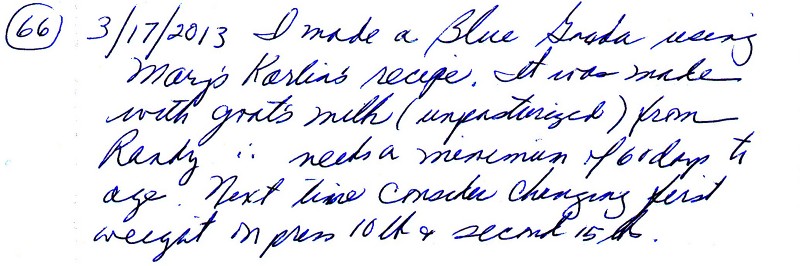 (66) 3/17/2013 I made a Blue Gouda using
Mary's Karlin's recipe. It was made
with goat's milk (unpasturized) from
Randy ∴ needs a minimum of 60 days to
age. Next time consider changing first
weight on press 10 lb & second 15 lb.